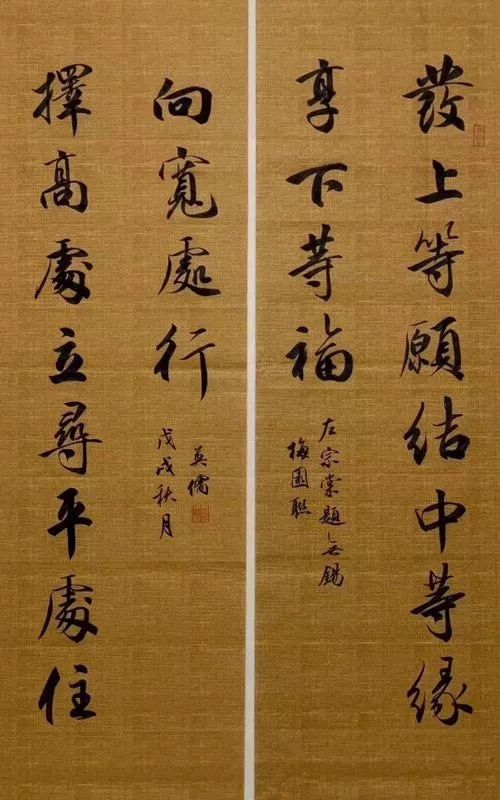 發上等願結中等緣
享下等福
左宗棠題無錫
梅園聯
擇高處立尋平處住
向寬處行
戊戌秋月
英儒